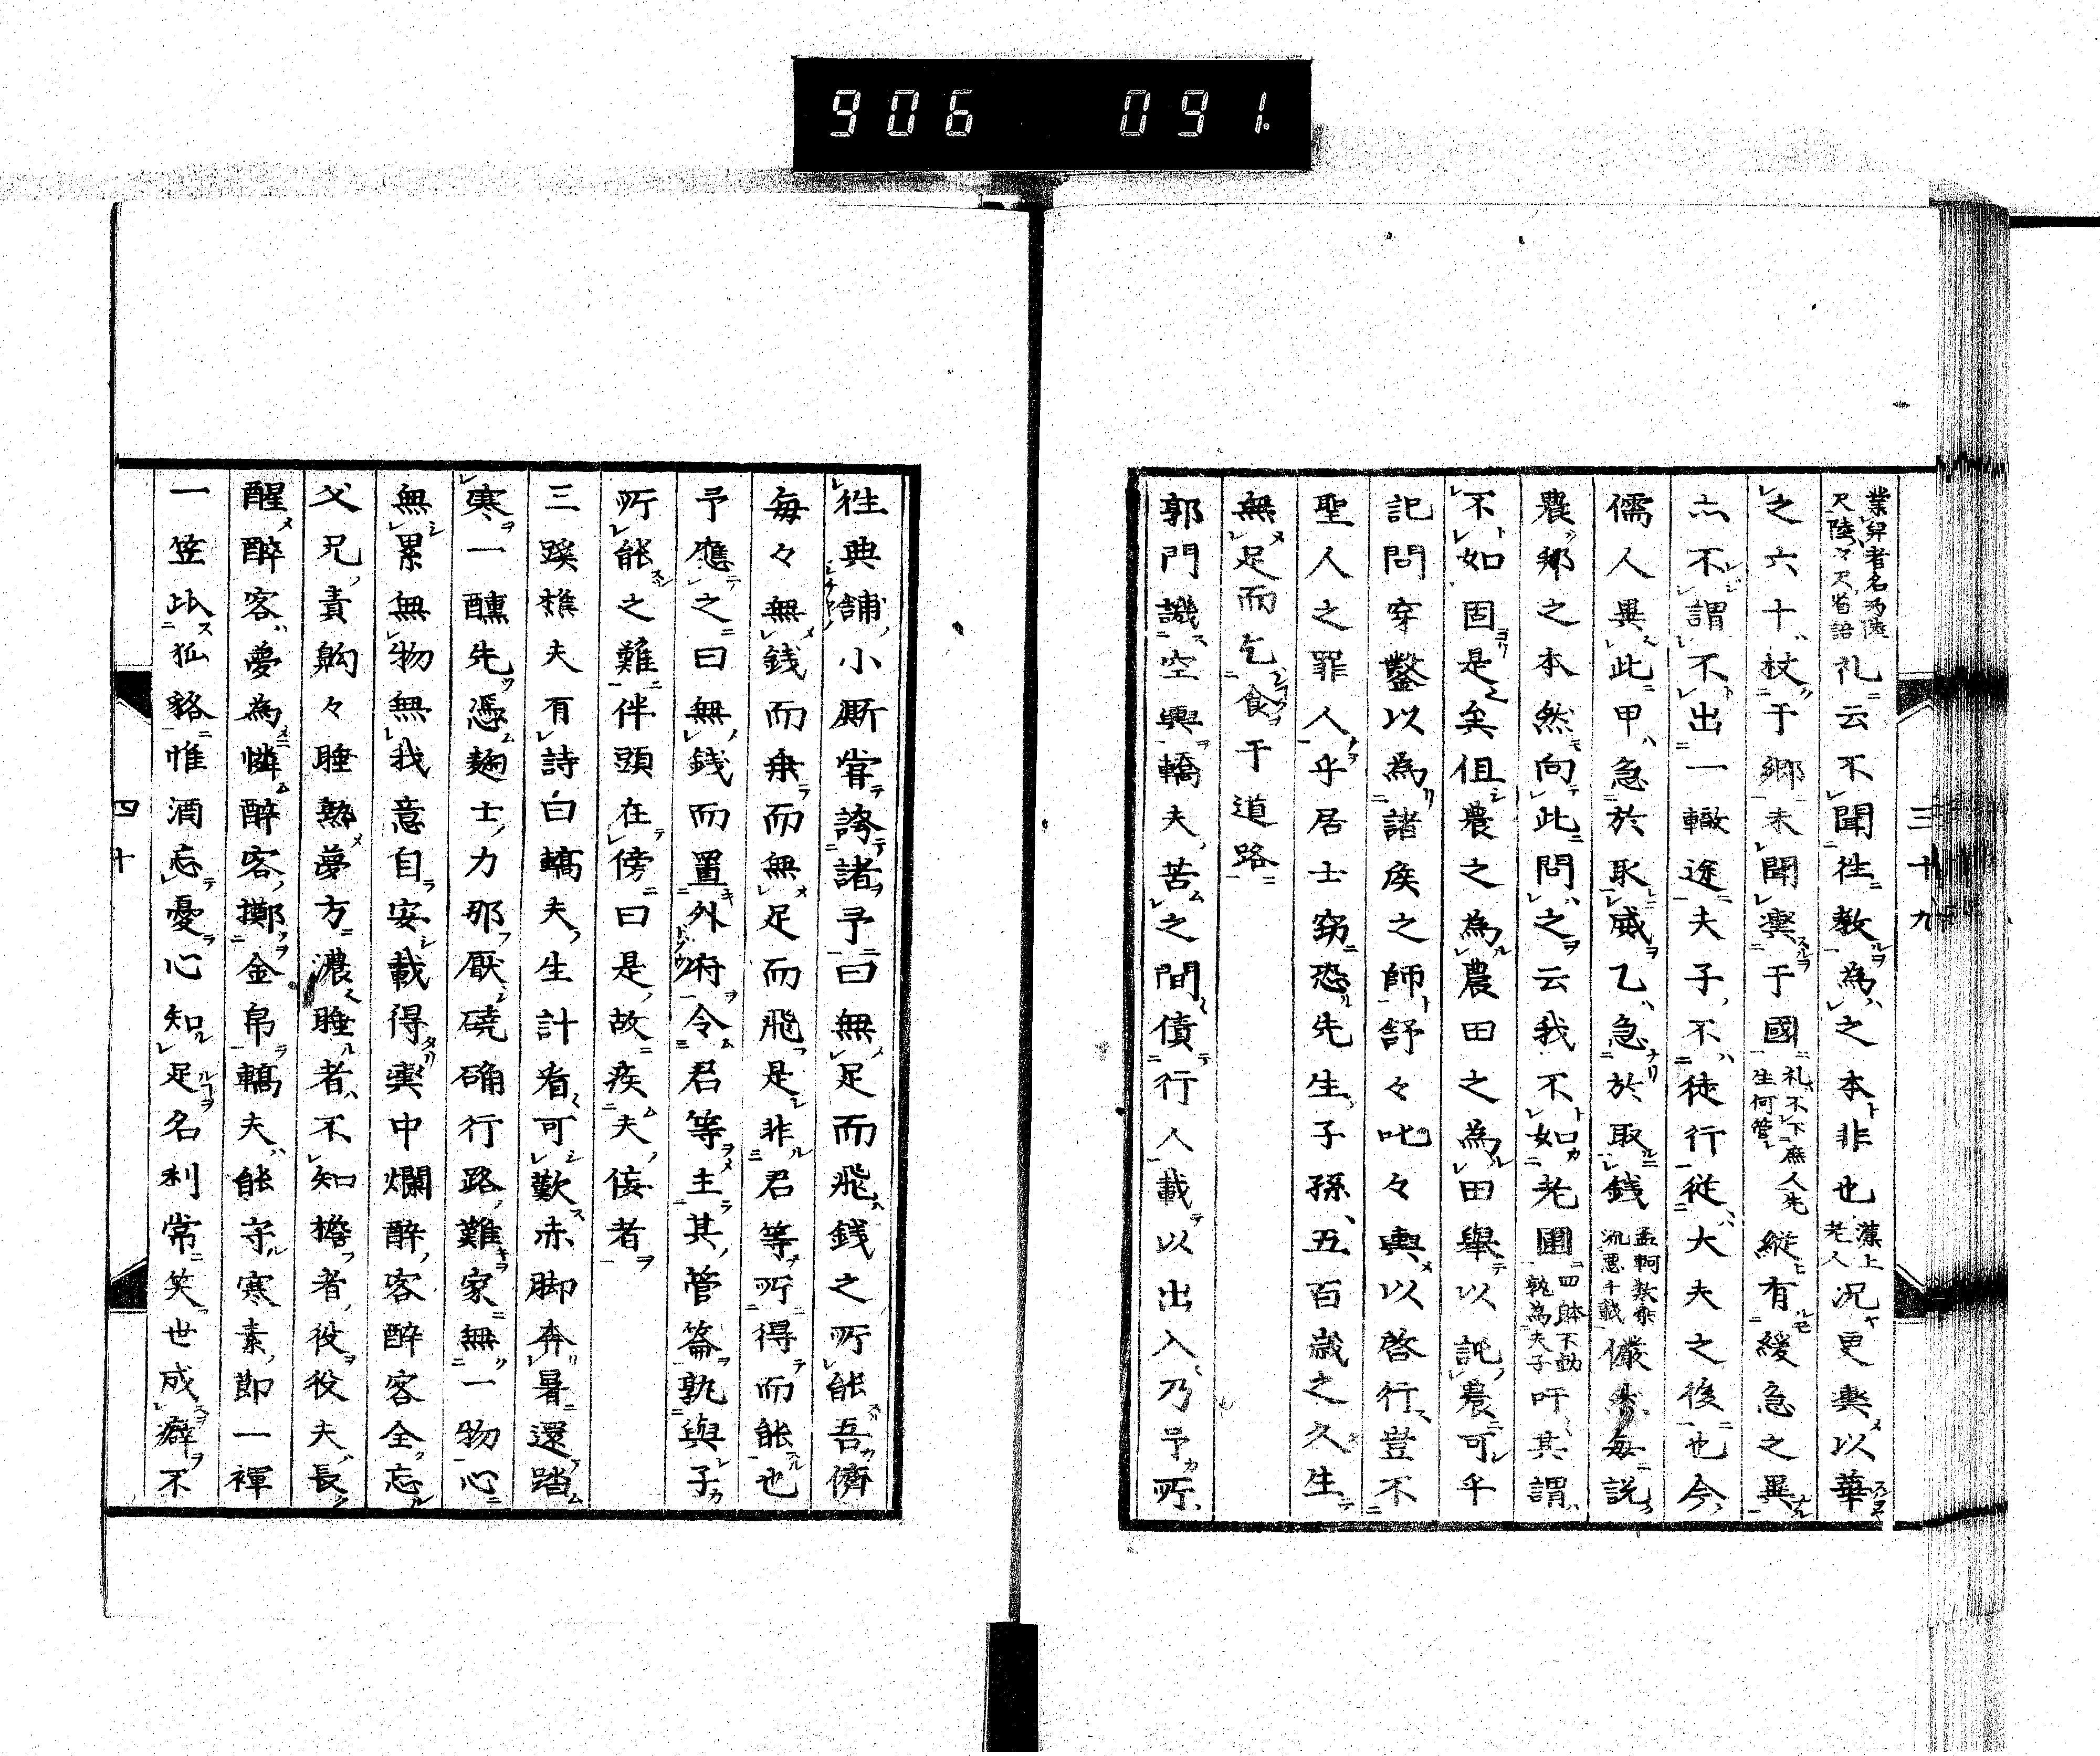 906 091.
業舁者名為陸
尺陸々尺省語礼云不聞往教為之本非也藻上
老人況更輿以華
之六十杖于郷未聞輿于國礼不下庶人先
生何管縱有緩急之異
亦不謂不出一轍途夫子不徒行從大夫之後也今
儒人異此甲急於取威乙急於取錢孟軻数乘
流悪千載儼然每説
農郷之本然向此問之云我不如老圃四體不動
孰為夫子吁其謂
不如固是矣但農之為農田之為田舉以託農可乎
記問穿鑿以為諸矦之師訏々叱々輿以啓行豈不
聖人之罪人乎居士窃恐先生子孫五百歳之久生
無足而乞食于道路
郭門譏空輿轎夫苦之間債行人載以出入乃予所
三十九
徃典舗小厮甞誇諸予曰無足而飛錢之所能吾儕
每々無錢而乗而無足而飛是非君等所得而能也
予應之曰無錢而置外府令君等主其管籥孰與子
所能之難伴頭在傍曰是故疾夫侫者
三蹊樵夫有詩曰轎夫生計看可歎赤脚奔暑還踏
寒一醺先憑麹士力那厭磽确行路難家無一物心
無累無物無我意自安載得輿中爛醉客醉客全忘
父兄責齁々睡熟夢方濃睡者不知擔者役役夫長
醒醉客夢為憐醉客擲金帛轎夫能守寒素即一褌
一笠此狐貉惟酒忘憂心知足名利常笑世成癖不
四十